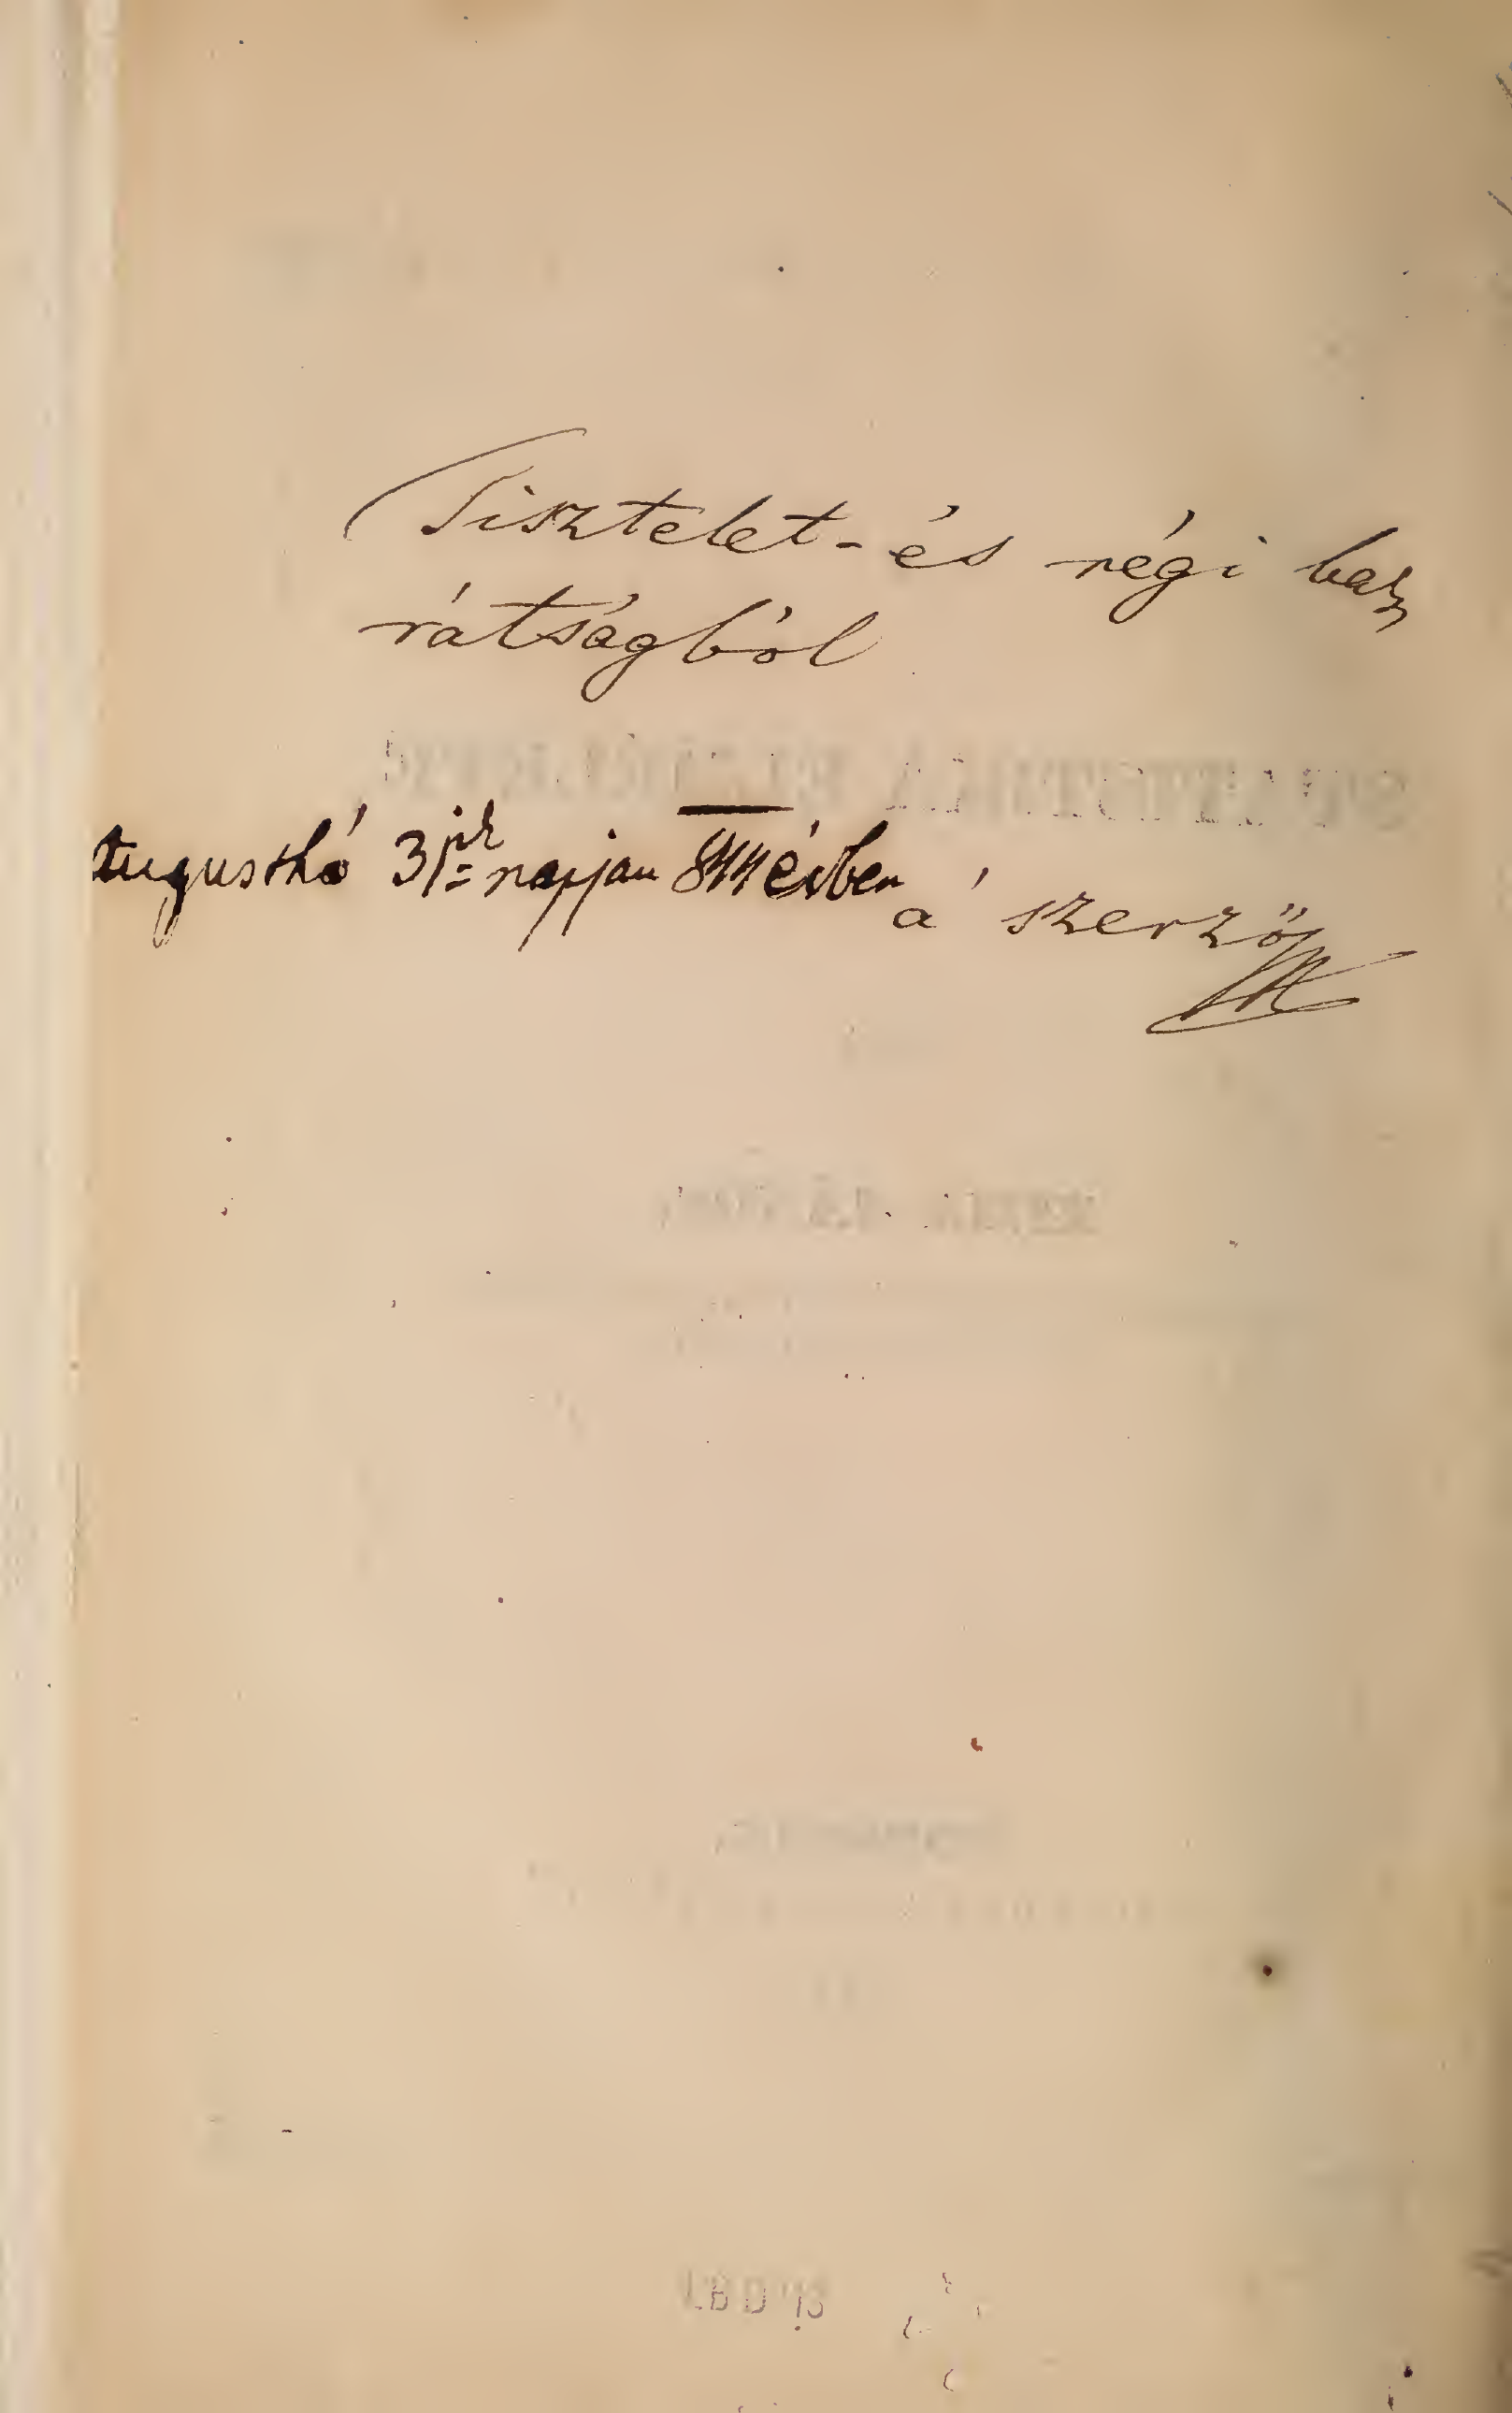 Tisztelet-és régi ba
rátságból
Augusthó 31ik napján 844 évben
a' szerző